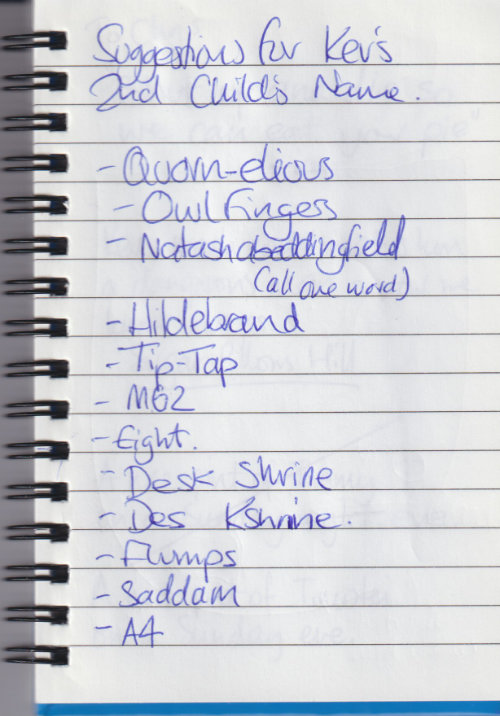 Suggestions for Kev's
2nd Child's Name.
- Quorn-elious
- Owl Fingers
- Natashabeddingfield
(all one word)
- Hildebrand
- Tip-Tap
- M62
- Eight.
- Desk Shrine
- Des Kshrine.
- Flumps
- Saddam
- A4